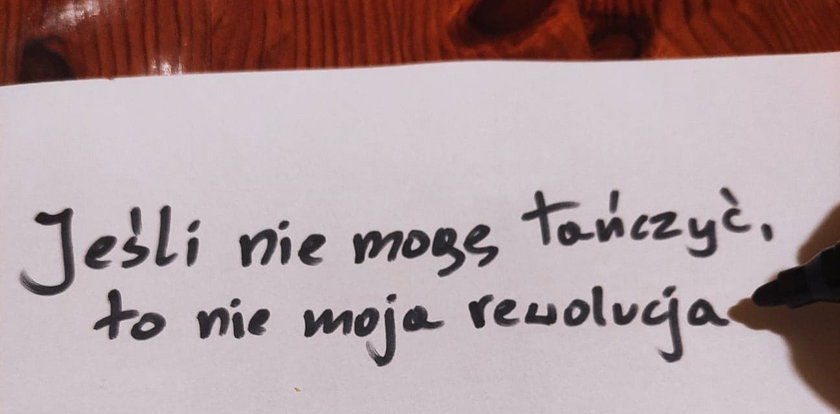 Jeśli nie mogę tańczyć,
to nie moja rewolucja